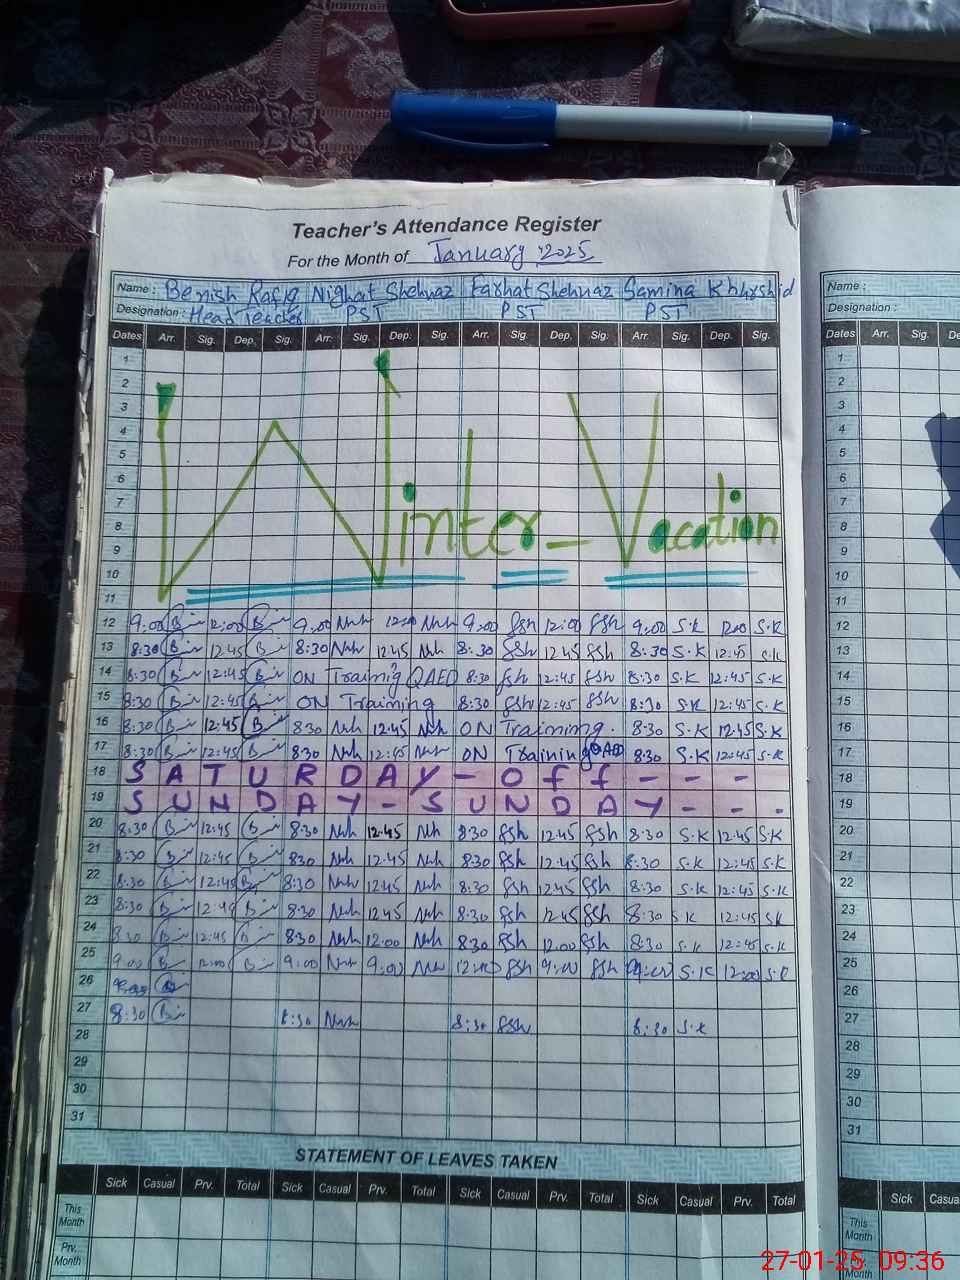 Teacher's Attendance Register
For the Month of January 2025
Name : Benish Rafiq Nighat Shehnaz Farhat Shehnaz Samina Khurshid
Name :
Designation : Head Teacher PST PST PST
Designation :
Dates Arr. Sig. Dep. Sig. Arr. Sig. Dep. Sig. Arr. Sig. Dep. Sig. Arr. Sig. Dep. Sig.
Dates Arr. Sig.
1 1
2 2
3 3
4 4
5 5
6 6
7 7
8 8
9 9
10 10
11 11
Winter - Vacation
12 9:00 12:00 9:00 Nsh 12:00 Nsh 9:00 fsh 12:00 fsh 9:00 S.K 12:00 S.K 12
13 8:30 12:45 8:30 Nsh 12:45 Nsh 8:30 fsh 12:45 fsh 8:30 S.K 12:45 S.K 13
14 8:30 12:45 ON Training QAED 8:30 fsh 12:45 fsh 8:30 S.K 12:45 S.K 14
15 8:30 12:45 ON Training 8:30 fsh 12:45 fsh 8:30 S.K 12:45 S.K 15
16 8:30 12:45 8:30 Nsh 12:45 Nsh ON Training. 8:30 S.K 12:45 S.K 16
17 8:30 12:45 8:30 Nsh 12:45 Nsh ON Training QAED 8:30 S.K 12:45 S.K 17
18 SATURDAY - OFF - - - 18
19 SUNDAY - SUNDAY - - - 19
20 8:30 12:45 8:30 Nsh 12:45 Nsh 8:30 fsh 12:45 fsh 8:30 S.K 12:45 S.K 20
21 8:30 12:45 8:30 Nsh 12:45 Nsh 8:30 fsh 12:45 fsh 8:30 S.K 12:45 S.K 21
22 8:30 12:45 8:30 Nsh 12:45 Nsh 8:30 fsh 12:45 fsh 8:30 S.K 12:45 S.K 22
23 8:30 12:45 8:30 Nsh 12:45 Nsh 8:30 fsh 12:45 fsh 8:30 S.K 12:45 S.K 23
24 8:30 12:45 8:30 Nsh 12:00 Nsh 8:30 fsh 12:00 fsh 8:30 S.K 12:45 S.K 24
25 9:00 12:00 9:00 Nsh 9:00 Nsh 12:00 fsh 9:00 fsh 9:00 S.K 12:00 S.K 25
26 26
27 8:30 8:30 Nsh 8:30 fsh 8:30 S.K 27
28 28
29 29
30 30
31 31
STATEMENT OF LEAVES TAKEN
Sick Casual Prv. Total Sick Casual Prv. Total Sick Casual Prv. Total Sick Casual Prv. Total
Sick
This Month
This Month
Prv. Month
Prv. Month
27-01-25 09:36